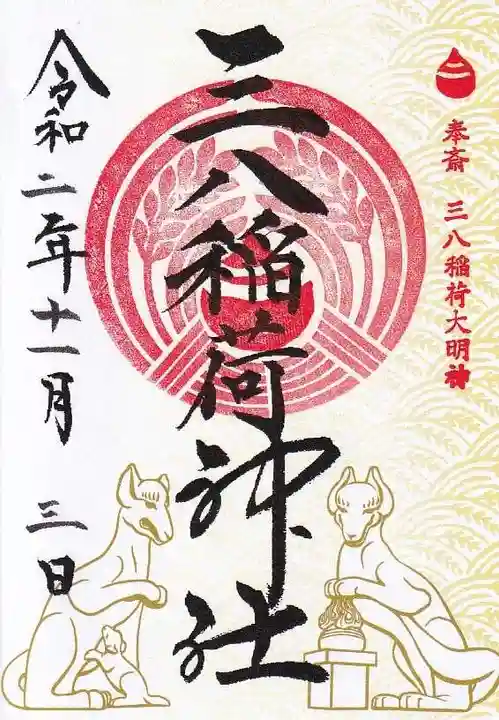 奉斎 三八稲荷大明神
三八稲荷神社
令和二年十一月 三日